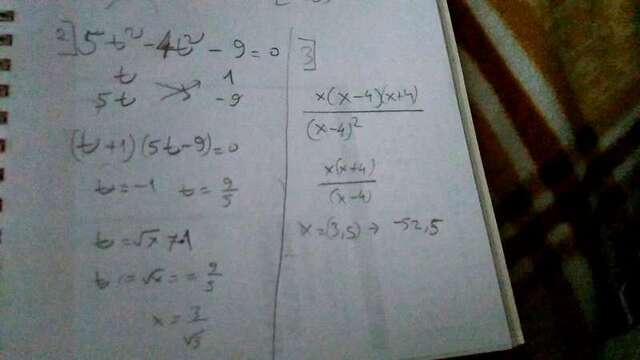 2] 5t² - 4t² - 9 = 0
t 1
5t -9
(t+1)(5t-9)=0
t=-1 t=9/5
t=√x≠1
t=√x=9/5
x=3/√5
3]
x(x-4)(x+4)
(x-4)²
x(x+4)
(x-4)
x=(3,5)→ -52,5